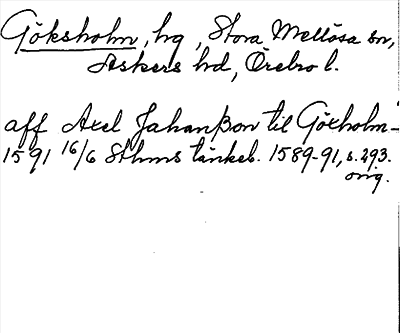 Göksholm, hg, Stora Mellösa sn,
Askers hd, Örebro l.
aff Axel Jahanßon til Göxholm -
1591 16/6 Sthms tänkeb. 1589-91, s. 293.
orig.